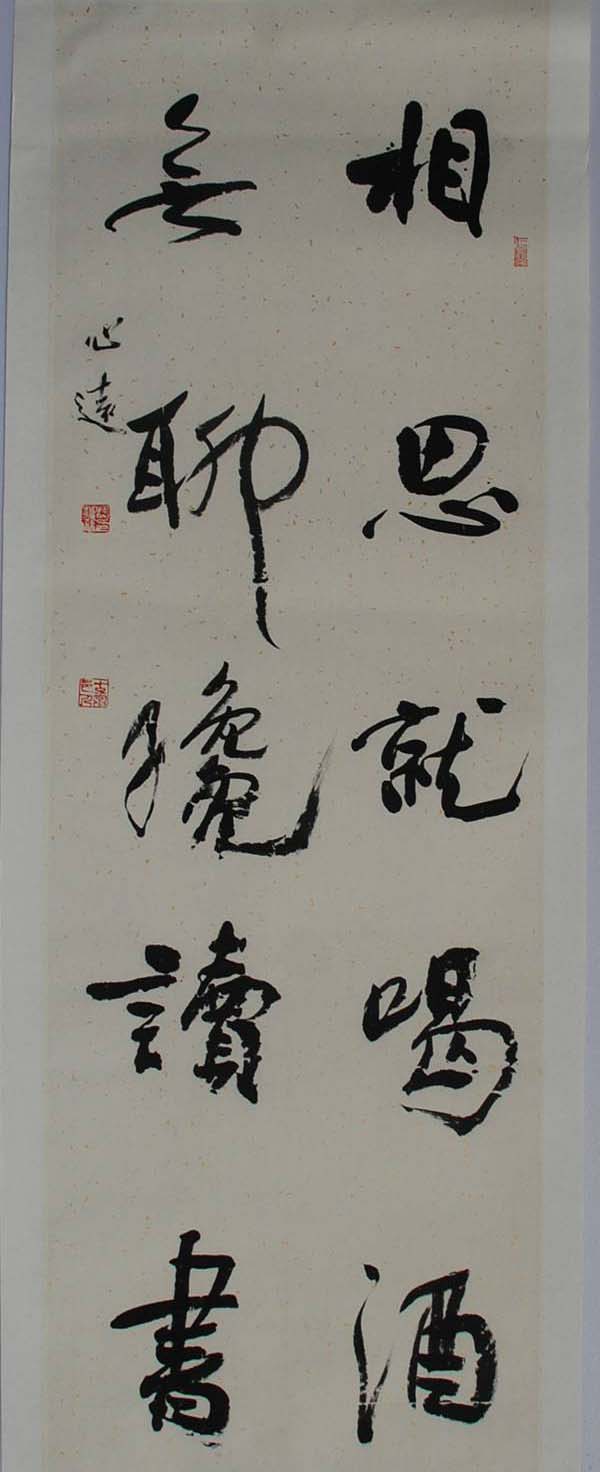 相思就喝酒
無聊纔讀書
心遠